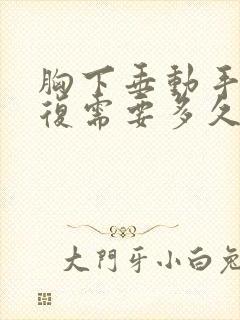 胸下垂動手
復需要多久
大門牙小白兔